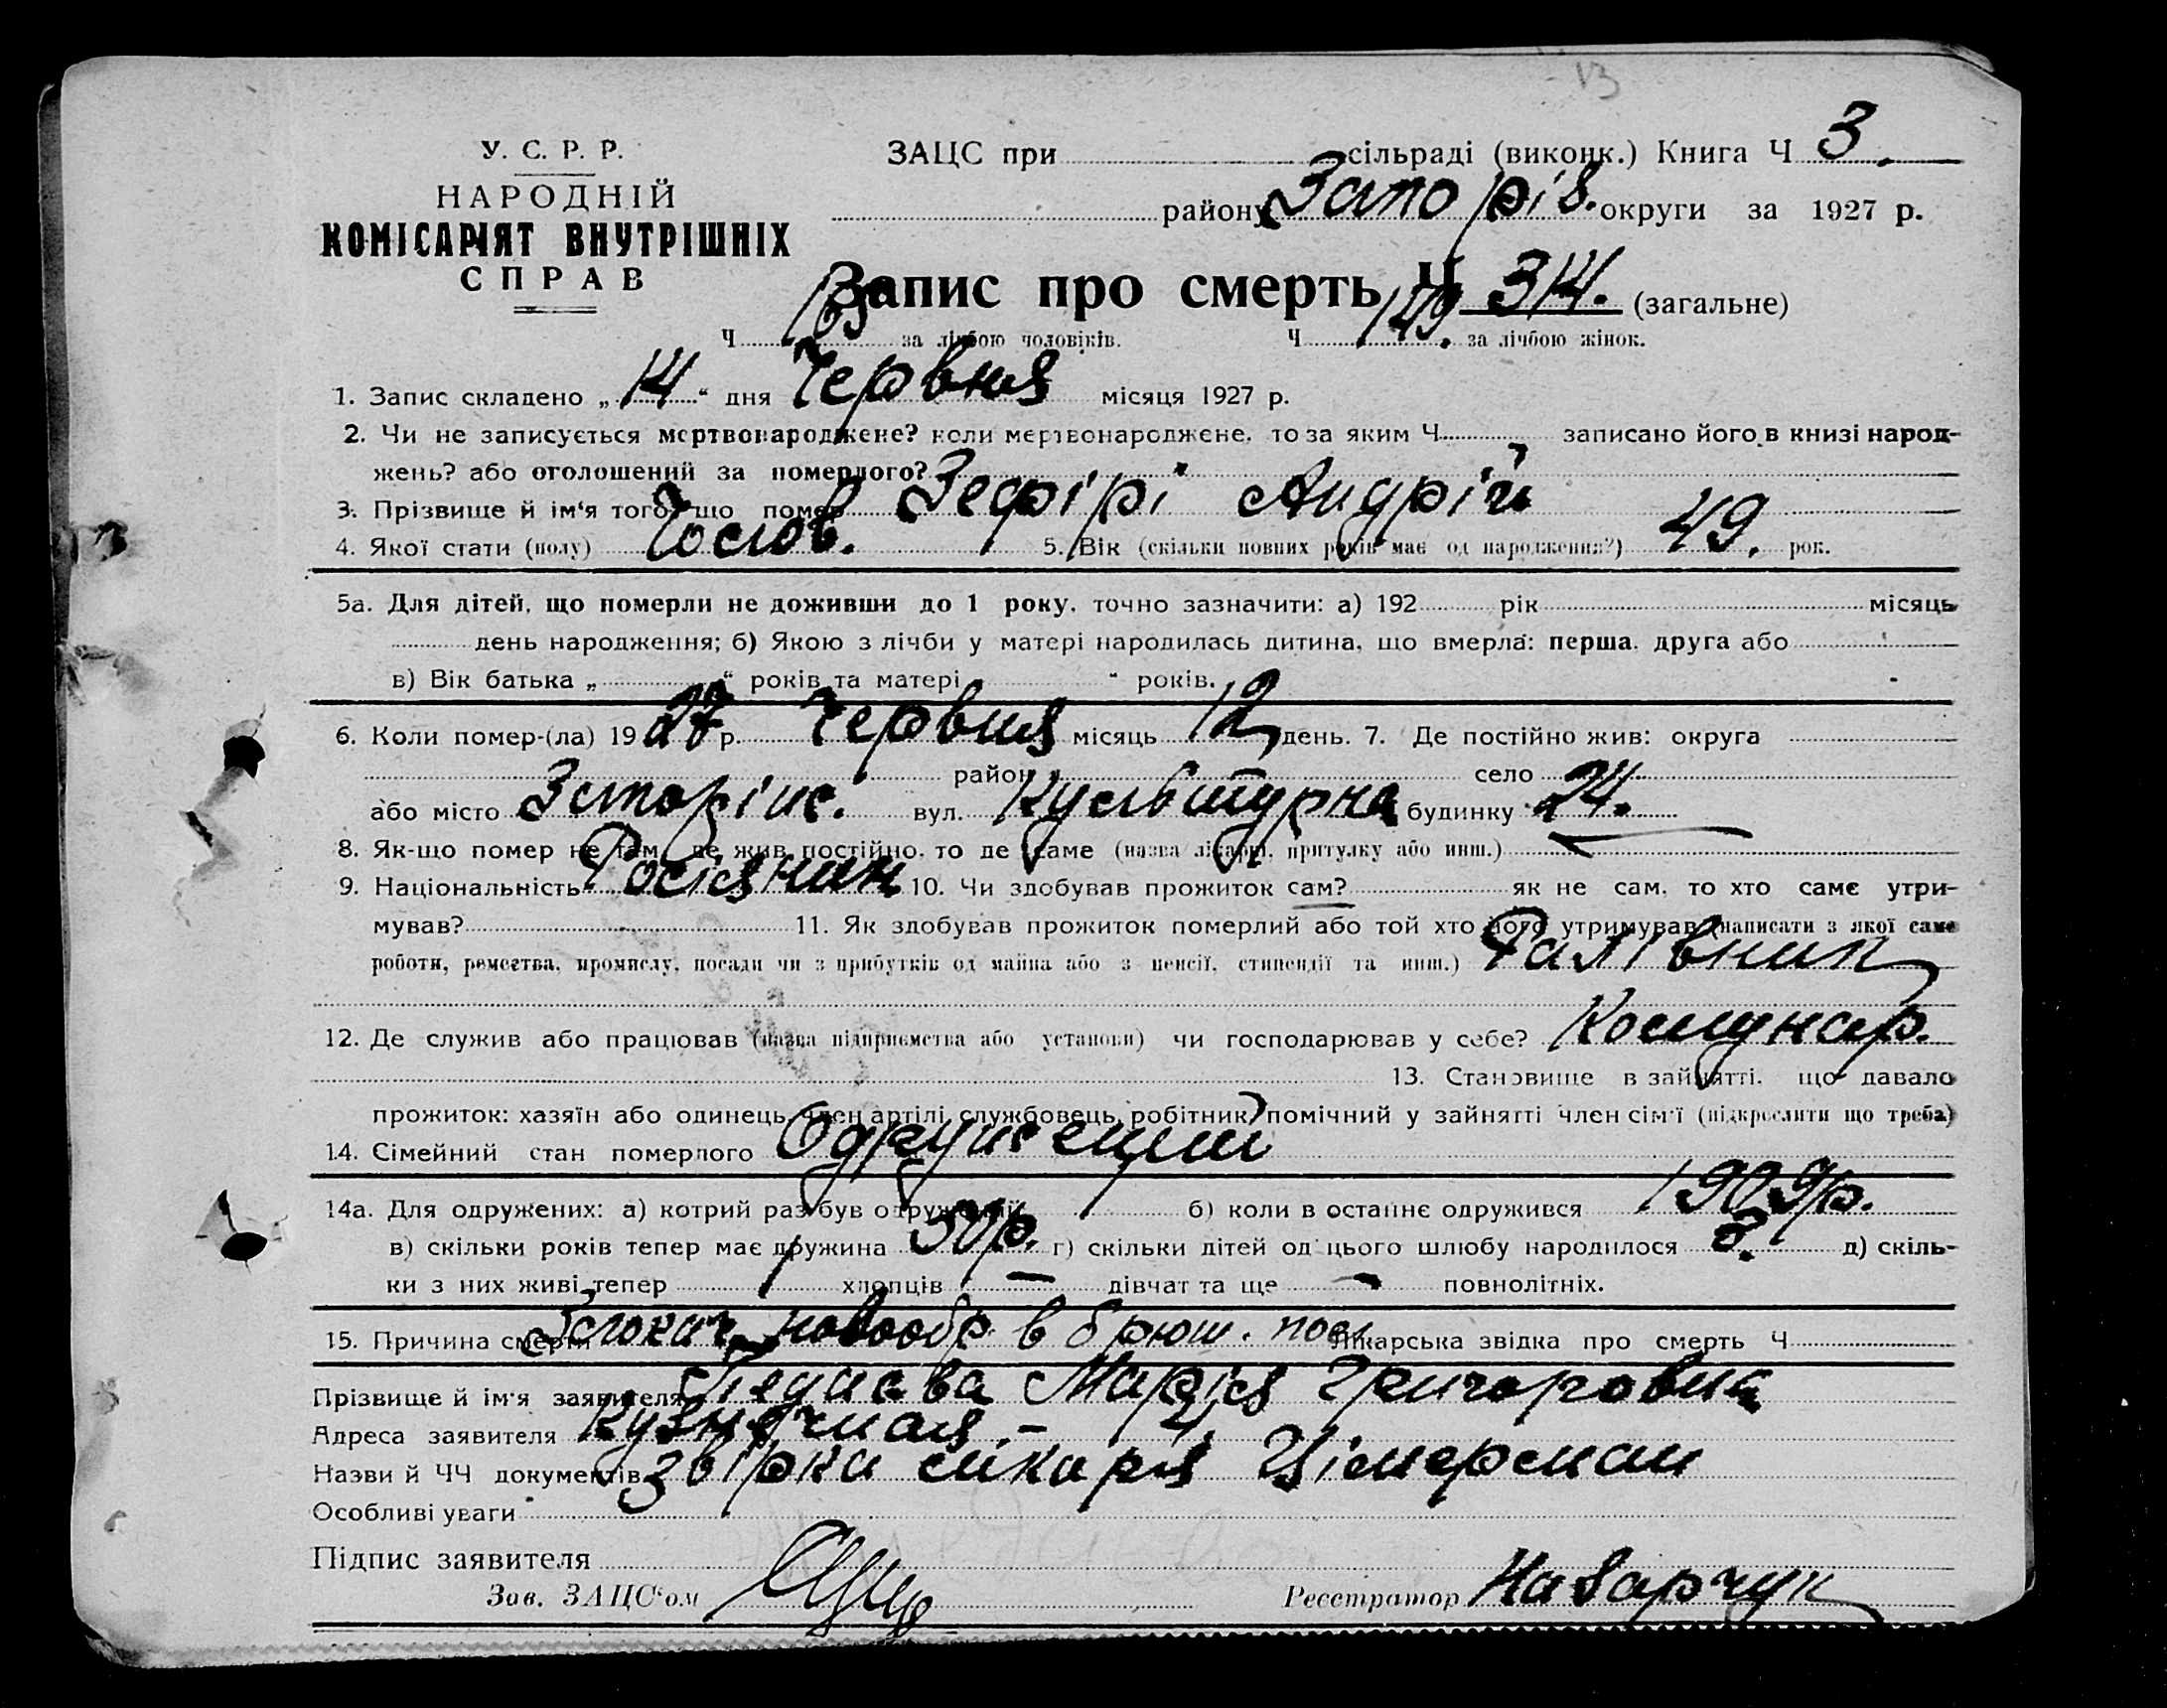 13
У. С. Р. Р.
НАРОДНІЙ
КОМІСАРІЯТ ВНУТРІШНІХ
СПРАВ
ЗАЦС при сільраді (виконк.) Книга Ч 3.
району Запоріз. округи за 1927 р.
Запис про смерть Ч 314. (загальне)
Ч 165 за лічбою чоловіків. Ч 149. за лічбою жінок.
1. Запис складено „14“ дня Червня місяця 1927 р.
2. Чи не записується мертвонароджене? коли мертвонароджене, то за яким Ч записано його в книзі народ-
жень? або оголошений за померлого?
3. Прізвище й ім‘я того, що помер Зефірі Андрій
4. Якої стати (полу) Чолов. 5. Вік (скільки повних років має од народження?) 49. рок.
5а. Для дітей, що померли не доживши до 1 року, точно зазначити: а) 192 рік місяць
день народження; б) Якою з лічби у матері народилась дитина, що вмерла: перша, друга або
в) Вік батька „ “ років та матері “ років.
6. Коли помер-(ла) 1927 р. Червня місяць 12 день. 7. Де постійно жив: округа
район село
або місто вул. Культурна будинку 24.
8. Як-що помер не там, де жив постійно, то де саме (назва лікарні, притулку або инш.)
9. Національність Росіянин 10. Чи здобував прожиток сам? як не сам, то хто саме утри-
мував? 11. Як здобував прожиток померлий або той хто його утримував (написати з якої саме
роботи, ремества, промислу, посади чи з прибутків од майна або з пенсії, стипендії та инш.)
12. Де служив або працював (назва підприємства або установи) чи господарював у себе? Комунар.
13. Становище в зайнятті, що давало
прожиток: хазяїн або одинець, член артілі, службовець, робітник, помічний у зайнятті член сім‘ї (підкреслити що треба)
14. Сімейний стан померлого Одружений
14а. Для одружених: а) котрий раз був одружений б) коли в останнє одружився 1909р.
в) скільки років тепер має дружина 50р. г) скільки дітей од цього шлюбу народилося д) скіль-
ки з них живі тепер 1 хлопців — дівчат та ще - повнолітніх.
15. Причина смерти Злокач. новообр. в брюш. пол. Лікарська звідка про смерть Ч
Прізвище й ім‘я заявителя Марія Григоровна
Адреса заявителя Кузнечная -
Назви й ЧЧ документів звірка лікаря Цімерман
Особливі уваги
Підпис заявителя
Зав. ЗАЦС‘ом Реєстратор Наварчук